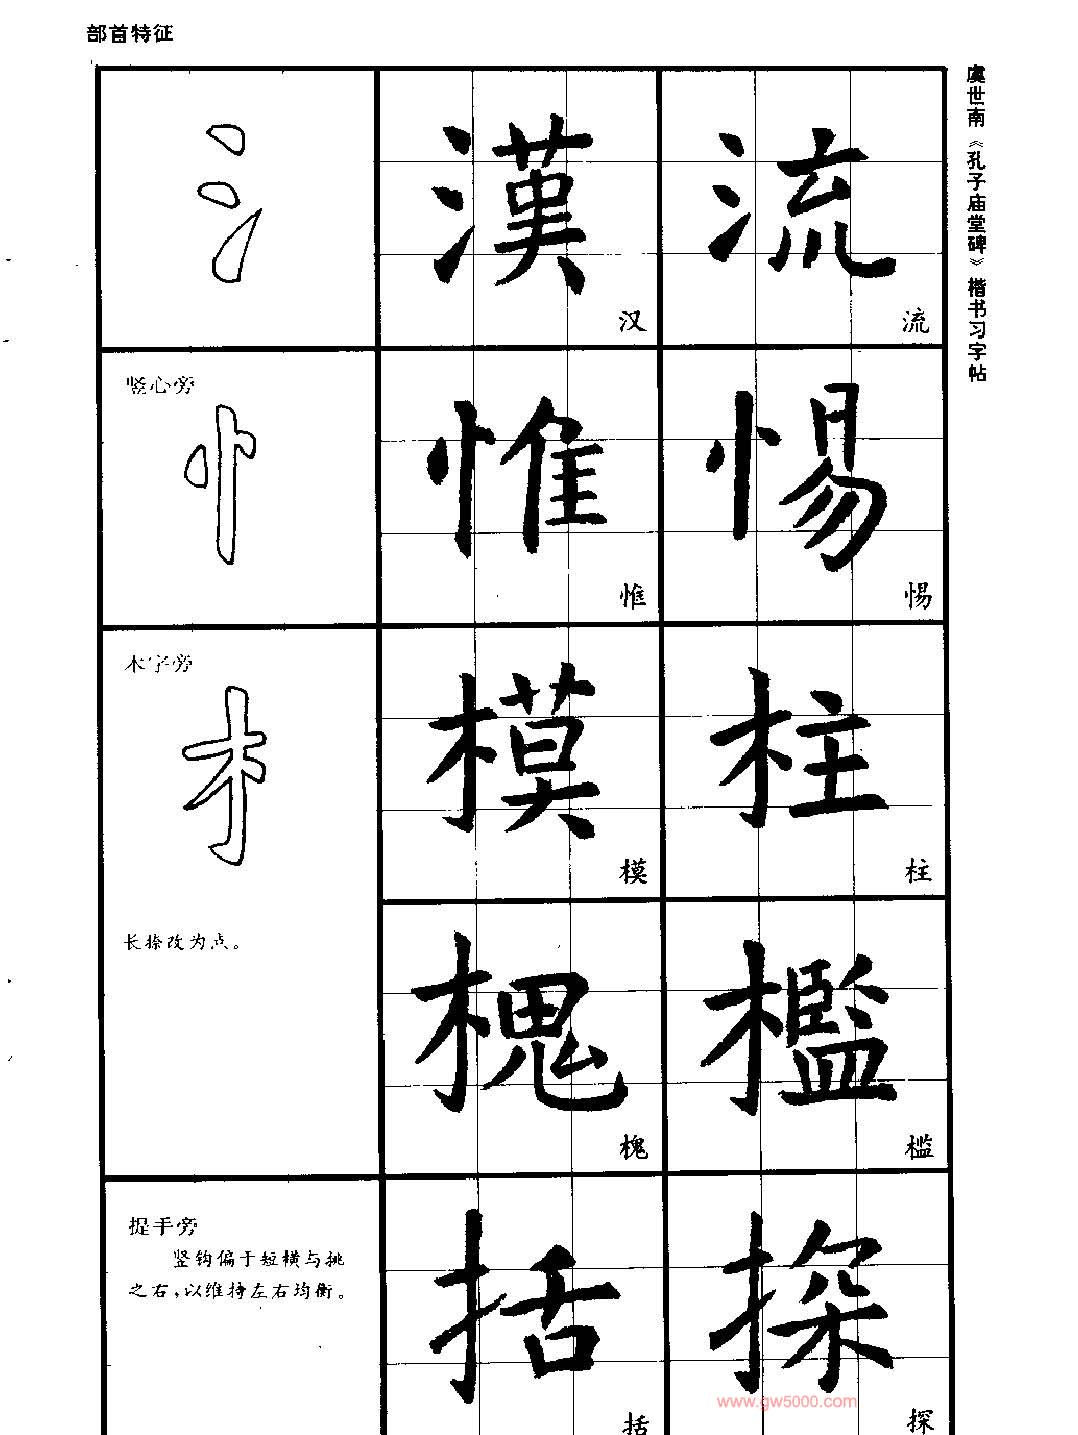 部首特征
虞世南《孔子庙堂碑》楷书习字帖
氵
漢
汉
流
流
竖心旁
忄
惟
惟
惕
惕
木字旁
木
長捺改为点。
模
模
柱
柱
槐
槐
檻
槛
提手旁
竖钩偏于短横与挑
之右，以维持左右均衡。
括
括
探
探
www.gw5000.com